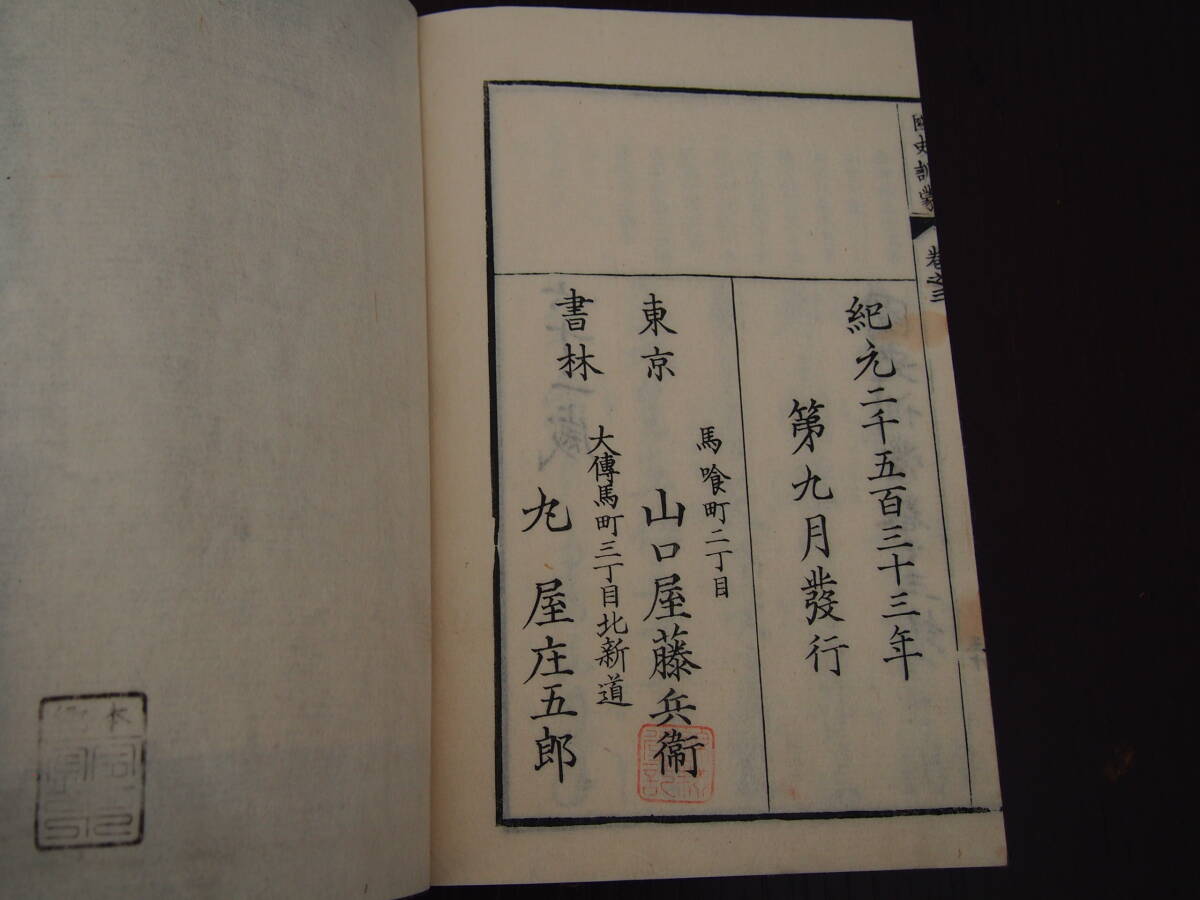 國史訓蒙
卷之三
紀元二千五百三十三年
第九月發行
東京
書林
馬喰町二丁目
山口屋藤兵衞
大傳馬町三丁目北新道
丸屋庄五郎